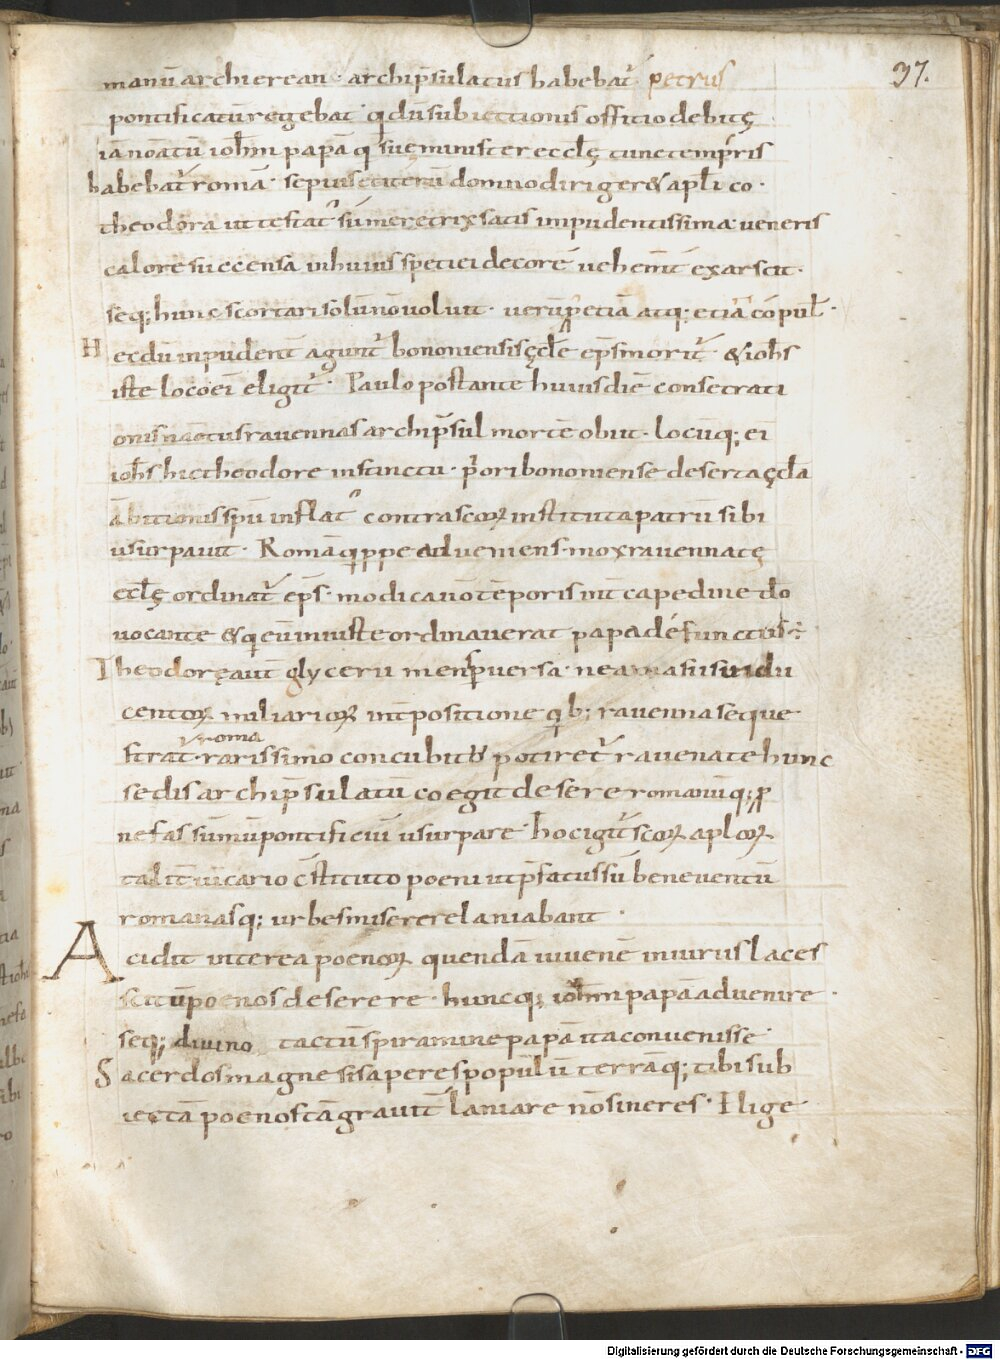 37.
manū archierean · archip̄sulatus habebat᷑ petrus
pontificatū regebat · qͥ dū subiectionis offitio debitę
iā noatū ioh̄m papā qͥ suę minister eccl̄ę tunc temp̄ris
habebat᷑ romā · sepius et iterū domno dirigeret apl̄ico ·
theodora ut testat᷑ sū meretrix satis impudentissima veneris
calore succensa in huius spetiei decorē vehem̄t exarsit ·
seq; hunc scortari solū nō voluit · verū ꝑ etiā atq; etiā cōpul̄ ·
Hec dū inpudent̄ agunt᷑ bononiensis ęccl̄e ep̄s morit᷑ · & ioh̄s
iste loco ei eligit᷑ · Paulo post ante huius diē consecrati
onis nactus ravennas archip̄sul mortē obiit · locūq; ei
ioh̄s hic theodore instinctu · p̄ori bononiense deserta ęccl̄a
ābitionis sp̄u inflat᷑ contra scōꝝ instituta patrū sibi
usurpavit · Romā qͥppe adveniens mox ravennatę
eccl̄ę ordinat᷑ ep̄s · modica vō tēporis int̄capedine dō
vocante & qͥ eū iniuste ordinaverat papa defunctus ÷
Theodoręaut̄ glycerii mens ꝑversa · ne amasii sui du
centoꝝ miliarioꝝ int̄positione qͥb; ravenna seque
roma
strat · rarissimo concubitu potiret᷑ ravenate hunc
sedis archip̄sulatū coegit deserere romanūq; ꝓ
nefas sūmū pontificiū usurpare · hoc igit᷑ scōꝝ aplōꝝ
talit̄ vicario cͫstituto poeni ut p̄fatus sū beneventū
romanasq; urbes misere relaniabant ·
Accidit interea poenoꝝ quendā iuvenē iniuriis laces
sitū poenos deserere · huncq; ioh̄m papā advenire ·
seq; divino tactū spiramine papā ita convenisse ·
Sacerdos magne si saperes populū terrāq; tibi sub
iectā poenos tā gravit̄ laniare nō sineres · Ilige
Digitalisierung gefördert durch die Deutsche Forschungsgemeinschaft - DFG